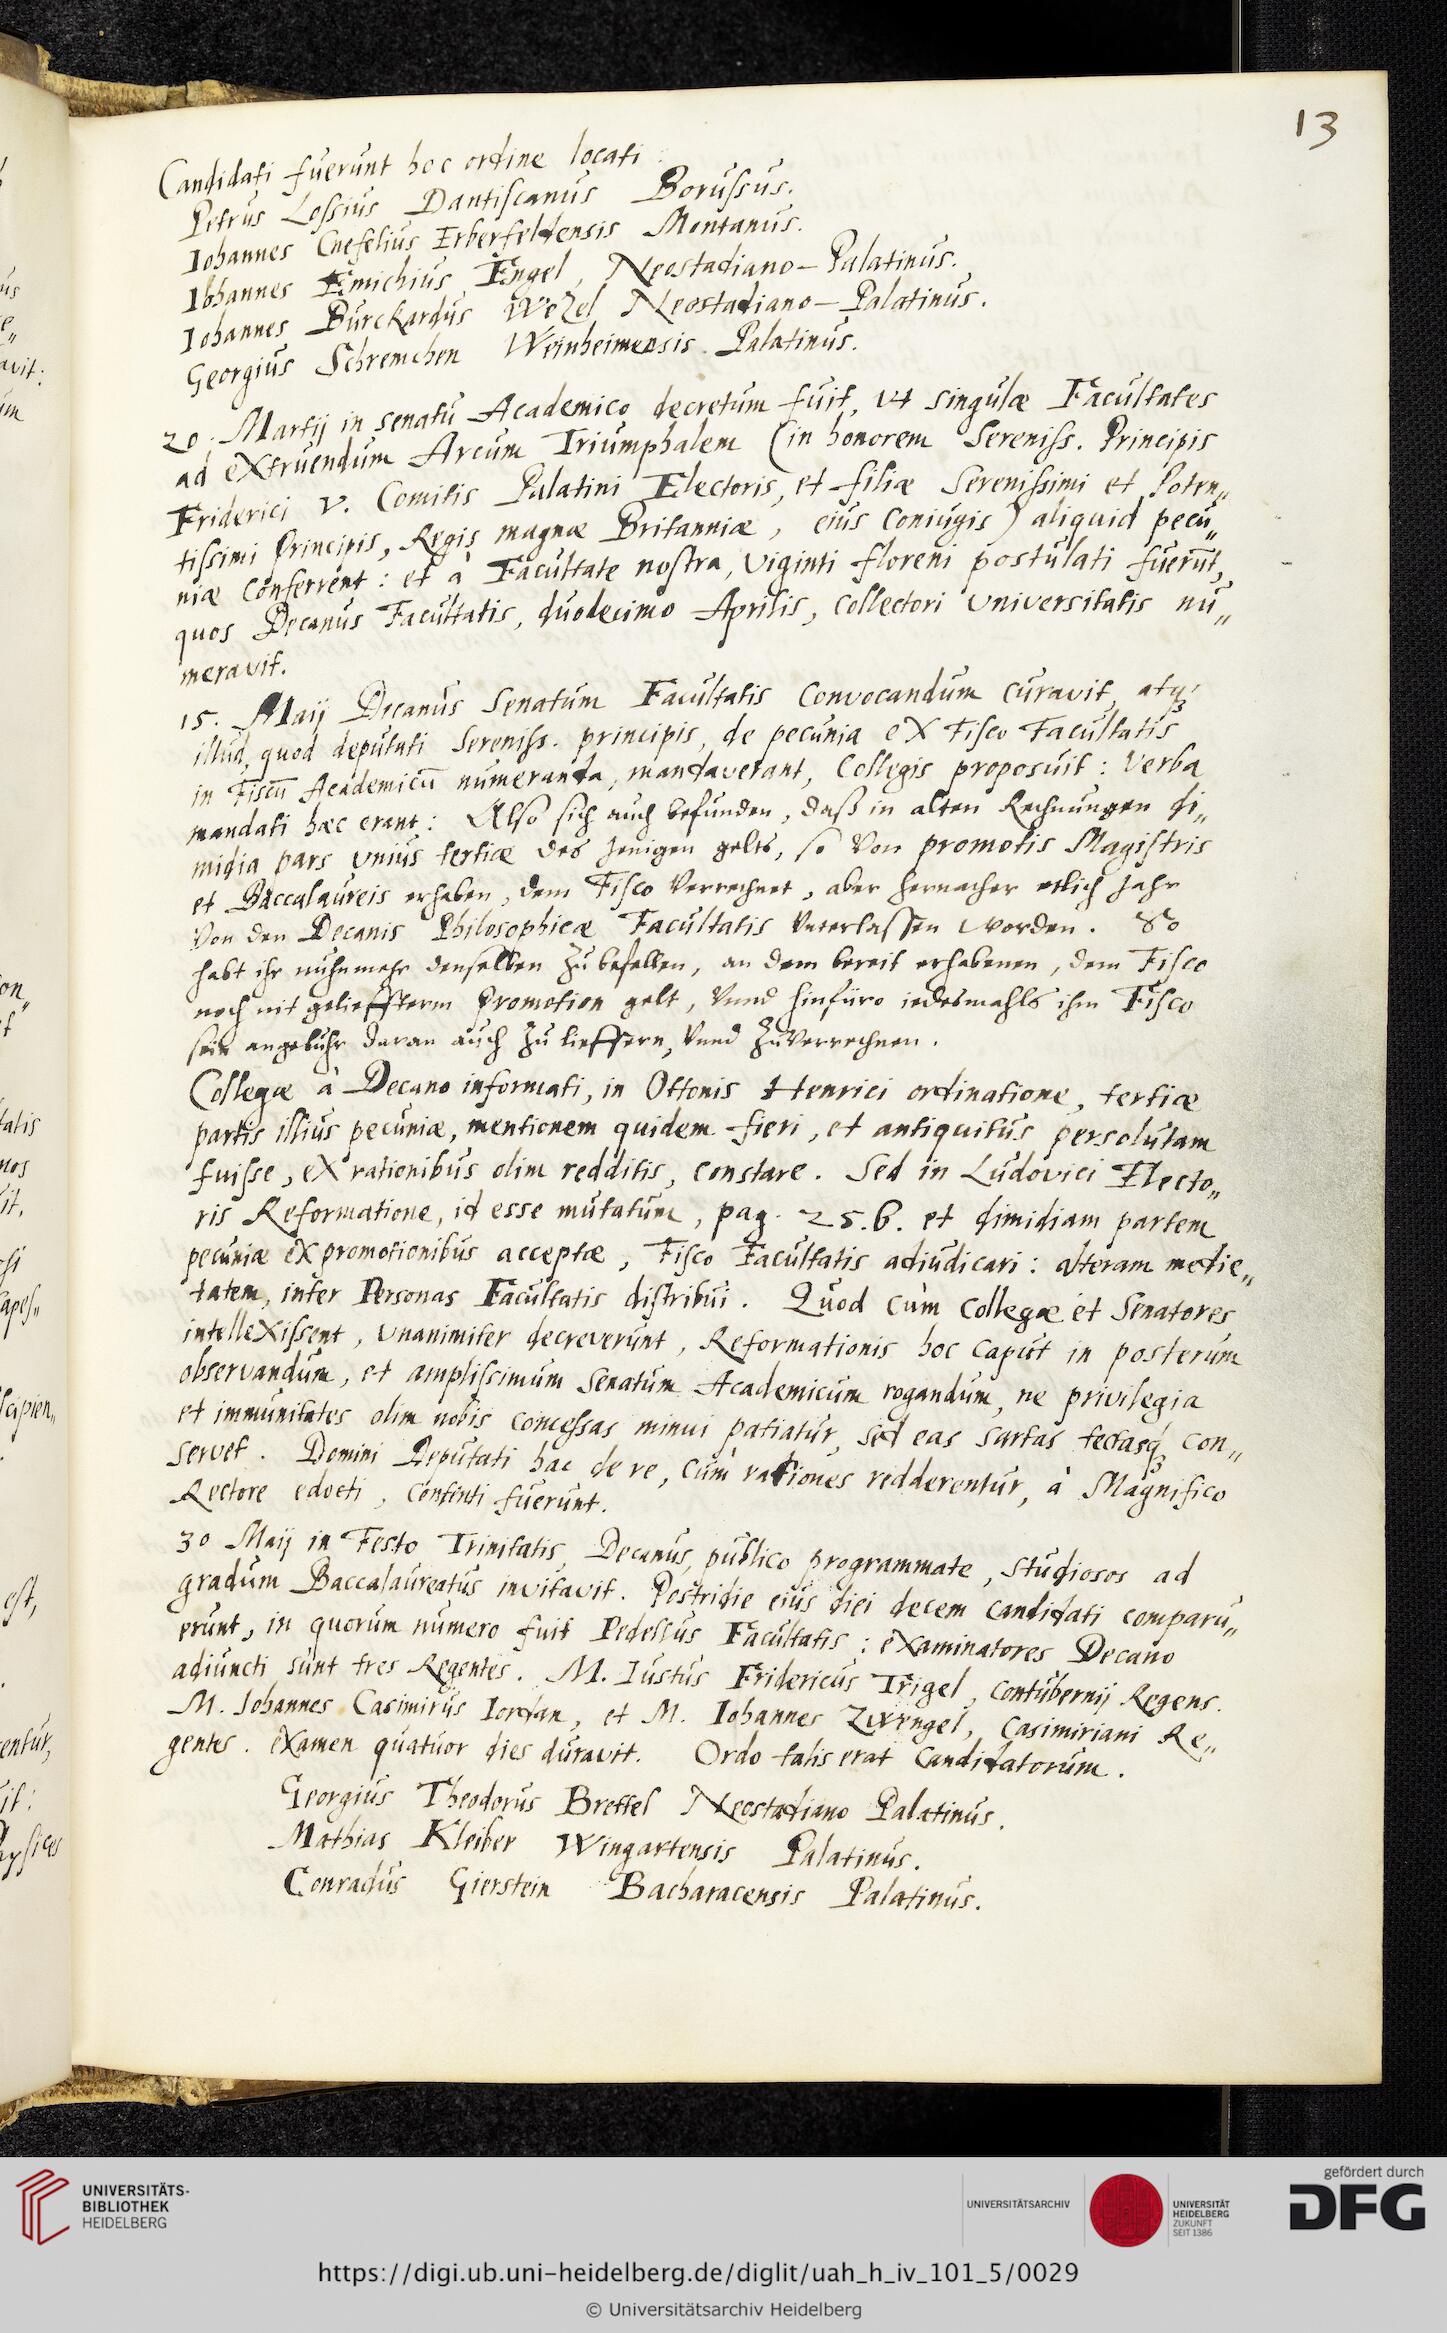 13
Candidati fuerunt hoc ordine locati
Petrus Lossius Dantiscanus Borussus.
Iohannes Cnefelius Erberfeldensis Montanus.
Iohannes Emichius Engel, Neostadiano-Palatinus.
Iohannes Burckardus Wezel Neostadiano-Palatinus.
Georgius Schremchen Weinheimensis Palatinus.
20. Martij in senatu Academico decretum fuit, ut singulæ Facultates
ad extruendum Arcum Triumphalem (in honorem Sereniss. Principis
Friderici V. Comitis Palatini Electoris, et filiæ Serenissimi et Poten„
tissimi Principis, Regis magnæ Britanniæ, eius coniugis) aliquid pecu„
niæ conferrent: et à Facultate nostra, viginti floreni postulati fuerūt,
quos Decanus Facultatis, duodecimo Aprilis, collectori universitatis nu„
meravit.
15. Maij Decanus Senatum Facultatis convocandum curavit, atq;
illud, quod deputati Sereniss. principis, de pecunia ex Fisco Facultatis
in Fiscū Academicū numeranda, mandaverant, Collegis proposuit: Verba
mandati hæc erant: Also sich auch befunden, daß in alten Rechnungen di„
midia pars unius tertiæ des jenigen gelts, so von promotis Magistris
et Baccalaureis erhaben, dem Fisco verrechnet, aber hernacher etlich Jahr
von den Decanis Philosophicæ Facultatis unterlassen worden. So
habt ihr nuhnmehr denselben zu befellen, an dem bereit erhabenen, dem Fisco
noch nit geliefferem Promotion gelt, vnnd hinfüro iedesmahls ihm Fisco
sein angebuhr daran auch zu lieffern, vnnd zuverrechnen.
Collegæ à Decano informati, in Ottonis Henrici ordinatione, tertiæ
partis illius pecuniæ, mentionem quidem fieri, et antiquitus persolutam
fuisse, ex rationibus olim redditis, constare. Sed in Ludovici Electo„
ris Reformatione, id esse mutatum, pag. 25.b. et dimidiam partem
pecuniæ ex promotionibus acceptæ, Fisco Facultatis adiudicari: alteram medie„
tatem, inter Personas Facultatis distribui. Quod cùm Collegæ et Senatores
intellexissent, unanimiter decreverunt, Reformationis hoc caput in posterum
observandum, et amplissimum Senatum Academicum rogandum, ne privilegia
et immunitates olim nobis concessas minui patiatur, sed eas sartas tectasq; con„
servet. Domini Deputati hac de re, cùm rationes redderentur, à Magnifico
Rectore edocti, contenti fuerunt.
30 Maij in Festo Trinitatis, Decanus, publico programmate, studiosos ad
gradum Baccalaureatus invitavit. Postridie eius diei decem candidati comparu„
erunt, in quorum numero fuit Pedellus Facultatis: examinatores Decano
adiuncti sunt tres Regentes. M. Iustus Fridericus Trigel, contubernij Regens.
M. Iohannes Casimirus Iordan, et M. Iohannes Zwengel, Casimiriani Re„
gentes. examen quatuor dies duravit. Ordo talis erat Candidatorum.
Georgius Theodorus Brettel Neostadiano Palatinus.
Mathias Kleiber Wingartensis Palatinus.
Conradus Gierstein Bacharacensis Palatinus.
UNIVERSITÄTS-
BIBLIOTHEK
HEIDELBERG
UNIVERSITÄTSARCHIV
UNIVERSITÄT
HEIDELBERG
ZUKUNFT
SEIT 1386
gefördert durch
DFG
https://digi.ub.uni-heidelberg.de/diglit/uah_h_iv_101_5/0029
© Universitätsarchiv Heidelberg